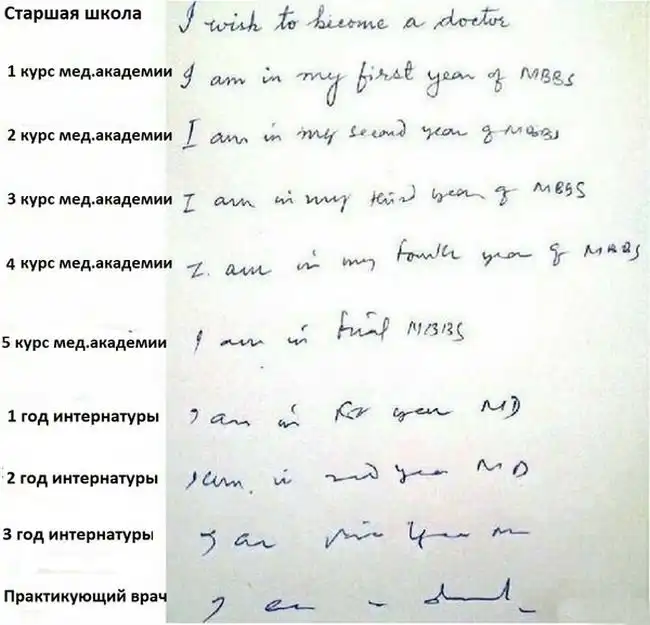 Старшая школа I wish to become a doctor
1 курс мед.академии I am in my first year of MBBS
2 курс мед.академии I am in my second year of MBBS
3 курс мед.академии I am in my third year of MBBS
4 курс мед.академии I. am in my fourth year of MBBS
5 курс мед.академии I am in final MBBS
1 год интернатуры I am in 1st year MD
2 год интернатуры I am in 2nd year MD
3 год интернатуры I am year
Практикующий врач I a